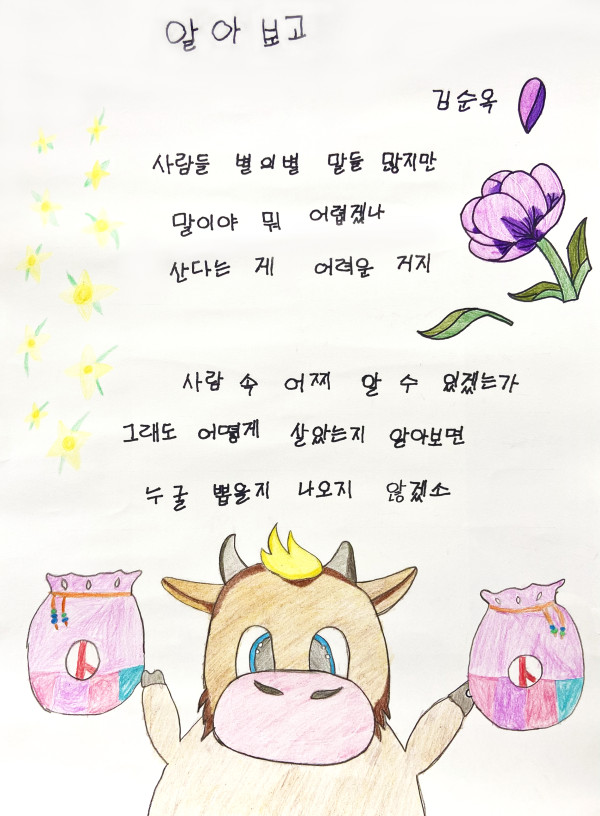 알아보고
김순옥
사람들 별의별 말들 많지만
말이야 뭐 어렵겠나
산다는 게 어려운 거지
사람 속 어찌 알 수 있겠는가
그래도 어떻게 살았는지 알아보면
누굴 뽑을지 나오지 않겠소